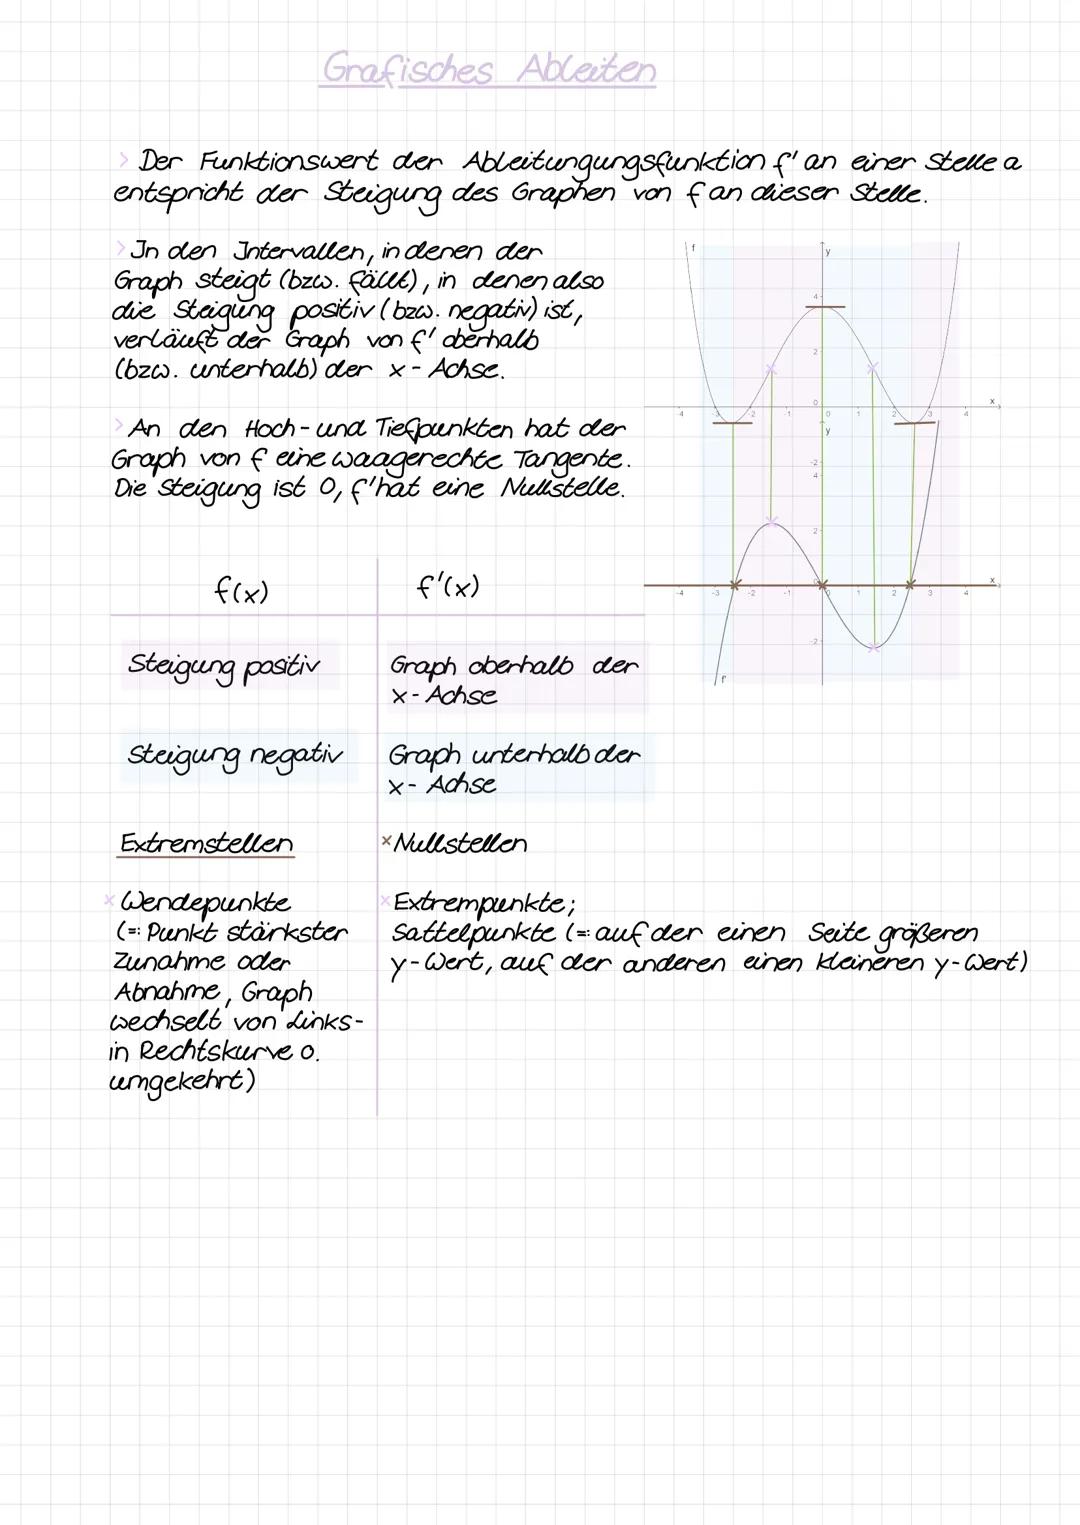 Grafisches Ableiten
> Der Funktionswert der Ableitungungsfunktion f' an einer Stelle a
entspricht der Steigung des Graphen von f an dieser Stelle.
> In den Intervallen, in denen der
Graph steigt (bzw. fällt), in denen also
die Steigung positiv (bzw. negativ) ist,
verläuft der Graph von f' oberhalb
(bzw. unterhalb) der x-Achse.
> An den Hoch- und Tiefpunkten hat der
Graph von f eine waagerechte Tangente.
Die Steigung ist 0, f' hat eine Nullstelle.
f
y
4
2
0
-4 -3 -2 -1 0 1 2 3 4 x
y
-2
4
2
0
-4 -3 -2 -1 0 1 2 3 4 x
-2
f'
f(x) f'(x)
Steigung positiv Graph oberhalb der
x-Achse
Steigung negativ Graph unterhalb der
x-Achse
Extremstellen × Nullstellen
× Wendepunkte × Extrempunkte;
(=: Punkt stärkster Sattelpunkte (=: auf der einen Seite größeren
Zunahme oder y-Wert, auf der anderen einen kleineren y-Wert)
Abnahme, Graph
wechselt von Links-
in Rechtskurve o.
umgekehrt)